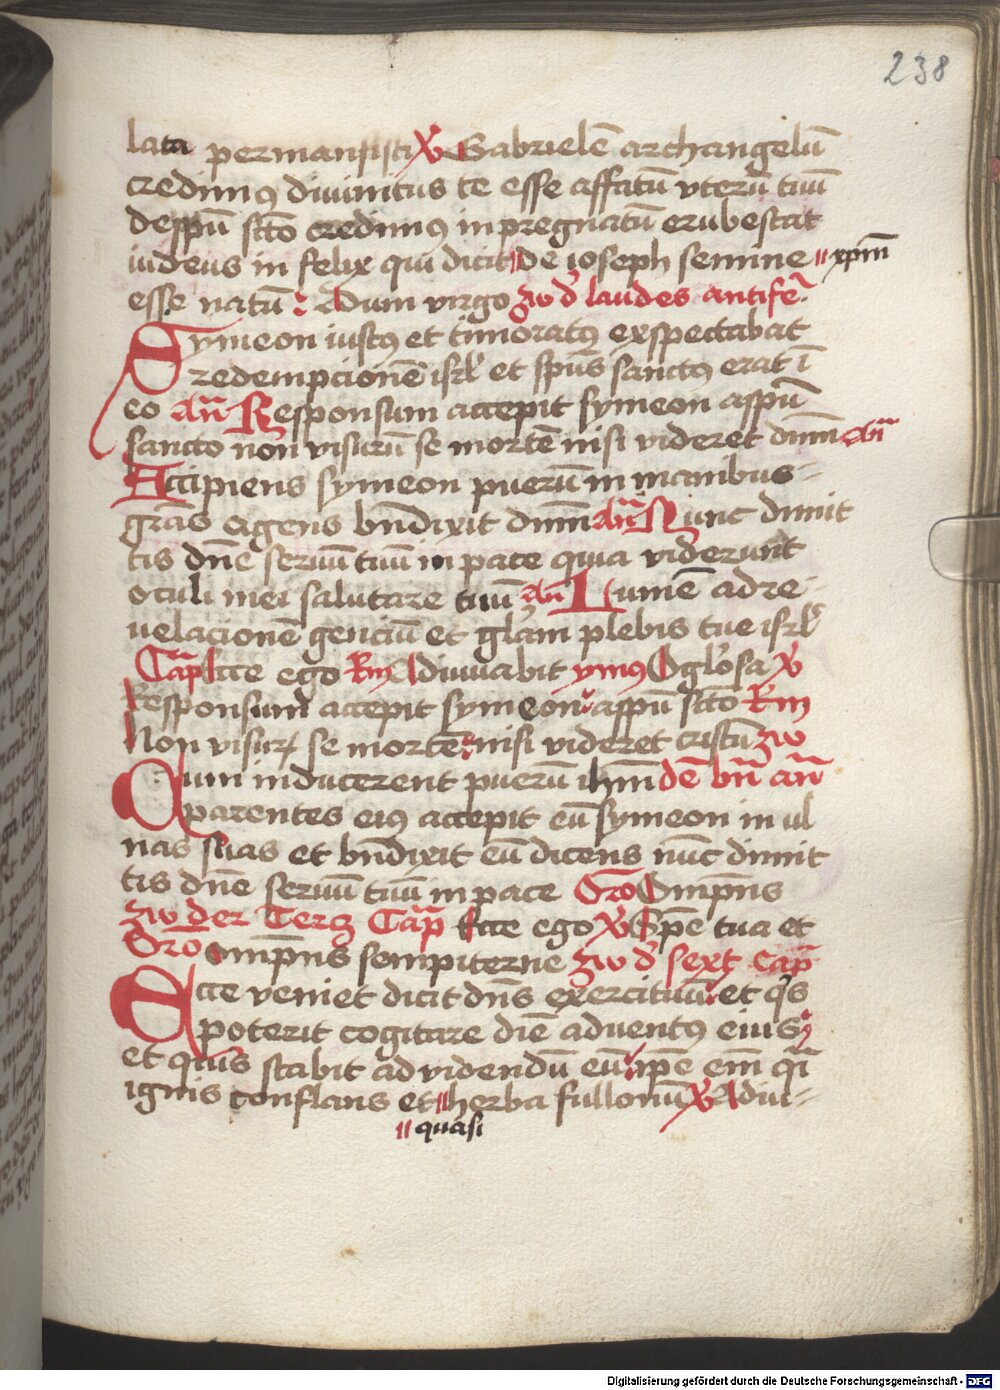 238
lata permansisti v̄ Gabrielē archangelū
credimꝰ diuinitus te esse affatū vterū tuū
despū sc̄to credimꝰ inpregnatū erubescat
iudeus in felix qui dicit ⸗ de ioseph semine ⸗ xp̄m
esse natū : Dum virgo zw d' laudes antife'
Symeon iustꝰ et timoratꝰ exspectabat
redempcionē isrl' et spūs sanctꝰ erat ī
eo an̄ Responsum accepit symeon aspū
sancto non visurū se mortē nisi videret dnm̄ an̄
Accipiens symeon puerū in manibus-
grās agens bn̄dixit dnm̄ an̄ Nunc dimit
tis dn̄e seruū tuū in pace quia viderunt
oculi mei salutare tuū an̄ Lumē ad re-
uelacionē genciū et glām plebis tue isrl'
Cap̄l Ecce ego Rm Adiuuabit ymꝰ O gl'osa v̄
Responsum accepit symeon aspū sc̄to Rm
Non visurꝝ se mortē : nisi videret cristū zw
Cum inducerent puerū ihm̄ dē bn̄ an̄
parentes eiꝰ accepit eū symeon in ul
nas suas et bn̄dixit eū dicens nūc dimit
tis dn̄e seruū tuū in pace Oro Omp̄ns
zw der Tercz Cap̄ Ecce ego v̄ Spē tua et
Oro omp̄ns sempiterne zw d' sext Cap̄
Ecce veniet dicit dn̄s exercituū et q's
poterit cogitare diē aduentꝰ eius
et quis stabit ad videndū eū ip̄e em̄ qī
ignis conflans et ⸗ herba fullonū v̄ Adiu-
⸗ quasi
Digitalisierung gefördert durch die Deutsche Forschungsgemeinschaft - DFG